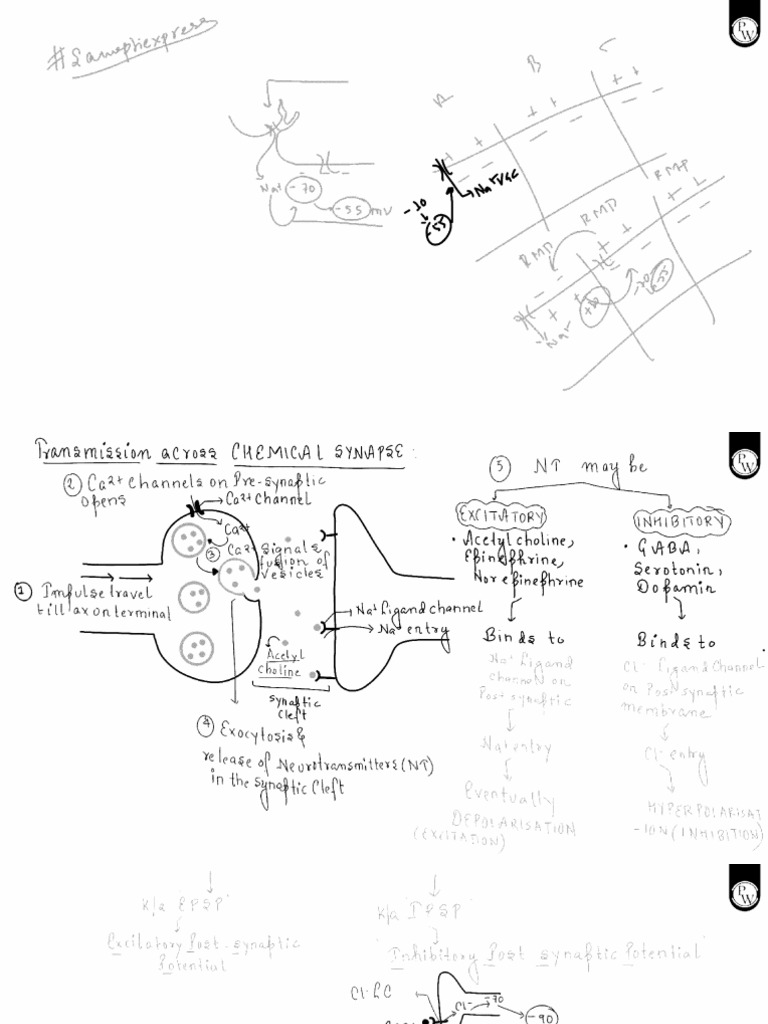 PW
A
B
C
+ + + + + +
Na⁺
-70
-55 mv
Na⁺VGC
-70
-55
RMP
RMP
RMP
-70
-55
Na⁺
PW
Transmission across CHEMICAL SYNAPSE:
② Ca²⁺ channels on Pre-synaptic
opens
Ca²⁺ Channel
Ca²⁺
③ Ca²⁺ signals
fusion of
vesicles
① Impulse travel
till axon terminal
Na⁺ Ligand channel
Na⁺ entry
Acetyl
choline
synaptic
cleft
④ Exocytosis &
release of Neurotransmitters (NT)
in the synaptic cleft
⑤ NT may be
EXCITATORY
• Acetyl choline,
Epinephrine,
Norepinephrine
Binds to
Na⁺ Ligand
channel on
Post synaptic
Na⁺ entry
Eventually
DEPOLARISATION
(EXCITATION)
INHIBITORY
• GABA,
Serotonin,
Dopamin
Binds to
Cl⁻ Ligand Channel
on Post synaptic
membrane
Cl⁻ entry
HYPERPOLARISAT
-ION (INHIBITION)
PW
K/a EPSP
Excitatory Post-synaptic
Potential
K/a IPSP
Inhibitory Post synaptic Potential
Cl⁻LC
Cl⁻
-70
-90